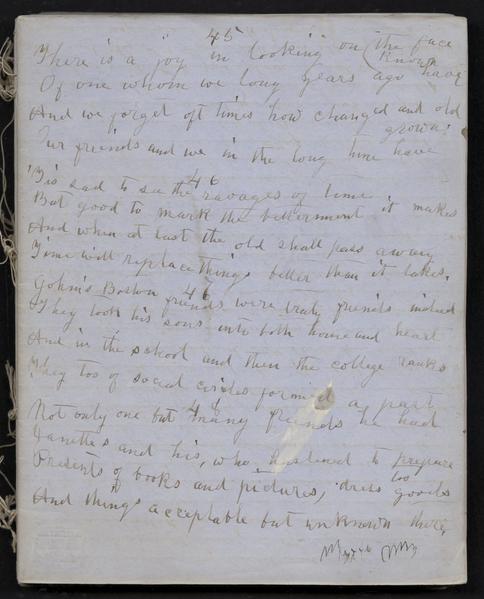 45
There is a joy in looking on the face
Of one whom we long years ago have known
And we forget oft times how changed and old
Our friends and we in the long time have grown.
46
'Tis sad to see the ravages of time
But good to mark the betterment it makes
And when at last the old shall pass away
Time will replace things better than it takes.
46
John's Boston friends were truly friends indeed
They took his sons into both home and heart
And in the school and then the college ranks
They too of social circles formed a part
48
Not only one but many friends he had
Janette's and his, who hastened to prepare
Presents of books and pictures, dress goods too
And things acceptable but unknown there,